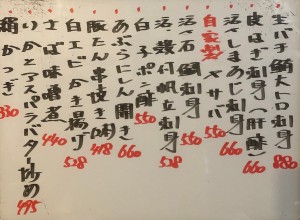 生バチ鮪大トロ刺身 880
皮はぎ刺身 肝醂 660
活〆しまあじ刺身 660
自家製〆サバ 550
活〆石鯛刺身 550
活殻付帆立刺身 580
白子ポン酢 550
あぶらにしん開き 660
豚たん串焼き 418
白エビかき揚げ 528
さば味噌煮 440
いかとアスパラバター炒め 495
絹かつぎ 330